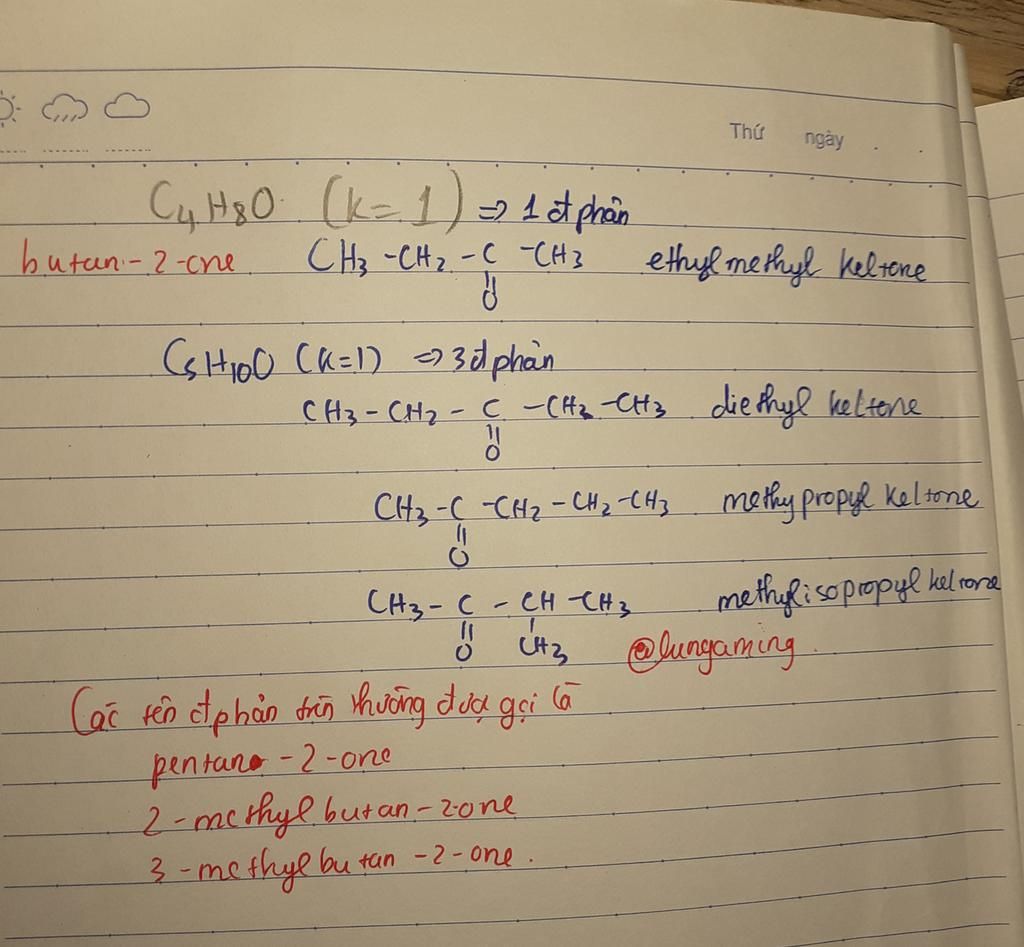 Thứ ngày
C4H8O (k=1) => 1 đ phân
butan-2-one CH3-CH2-C-CH3 ethylmethyl keltone
O
C5H10O (k=1) => 3 đ phân
CH3-CH2-C-CH2-CH3 diethyl keltone
O
CH3-C-CH2-CH2-CH3 methypropyl keltone
O
CH3-C-CH-CH3 methylisopropyl keltone
O CH3 @lungaming.
Các tên đ phân trên thường được gọi là
pentan-2-one
2-methylbutan-2one
3-methylbutan-2-one.